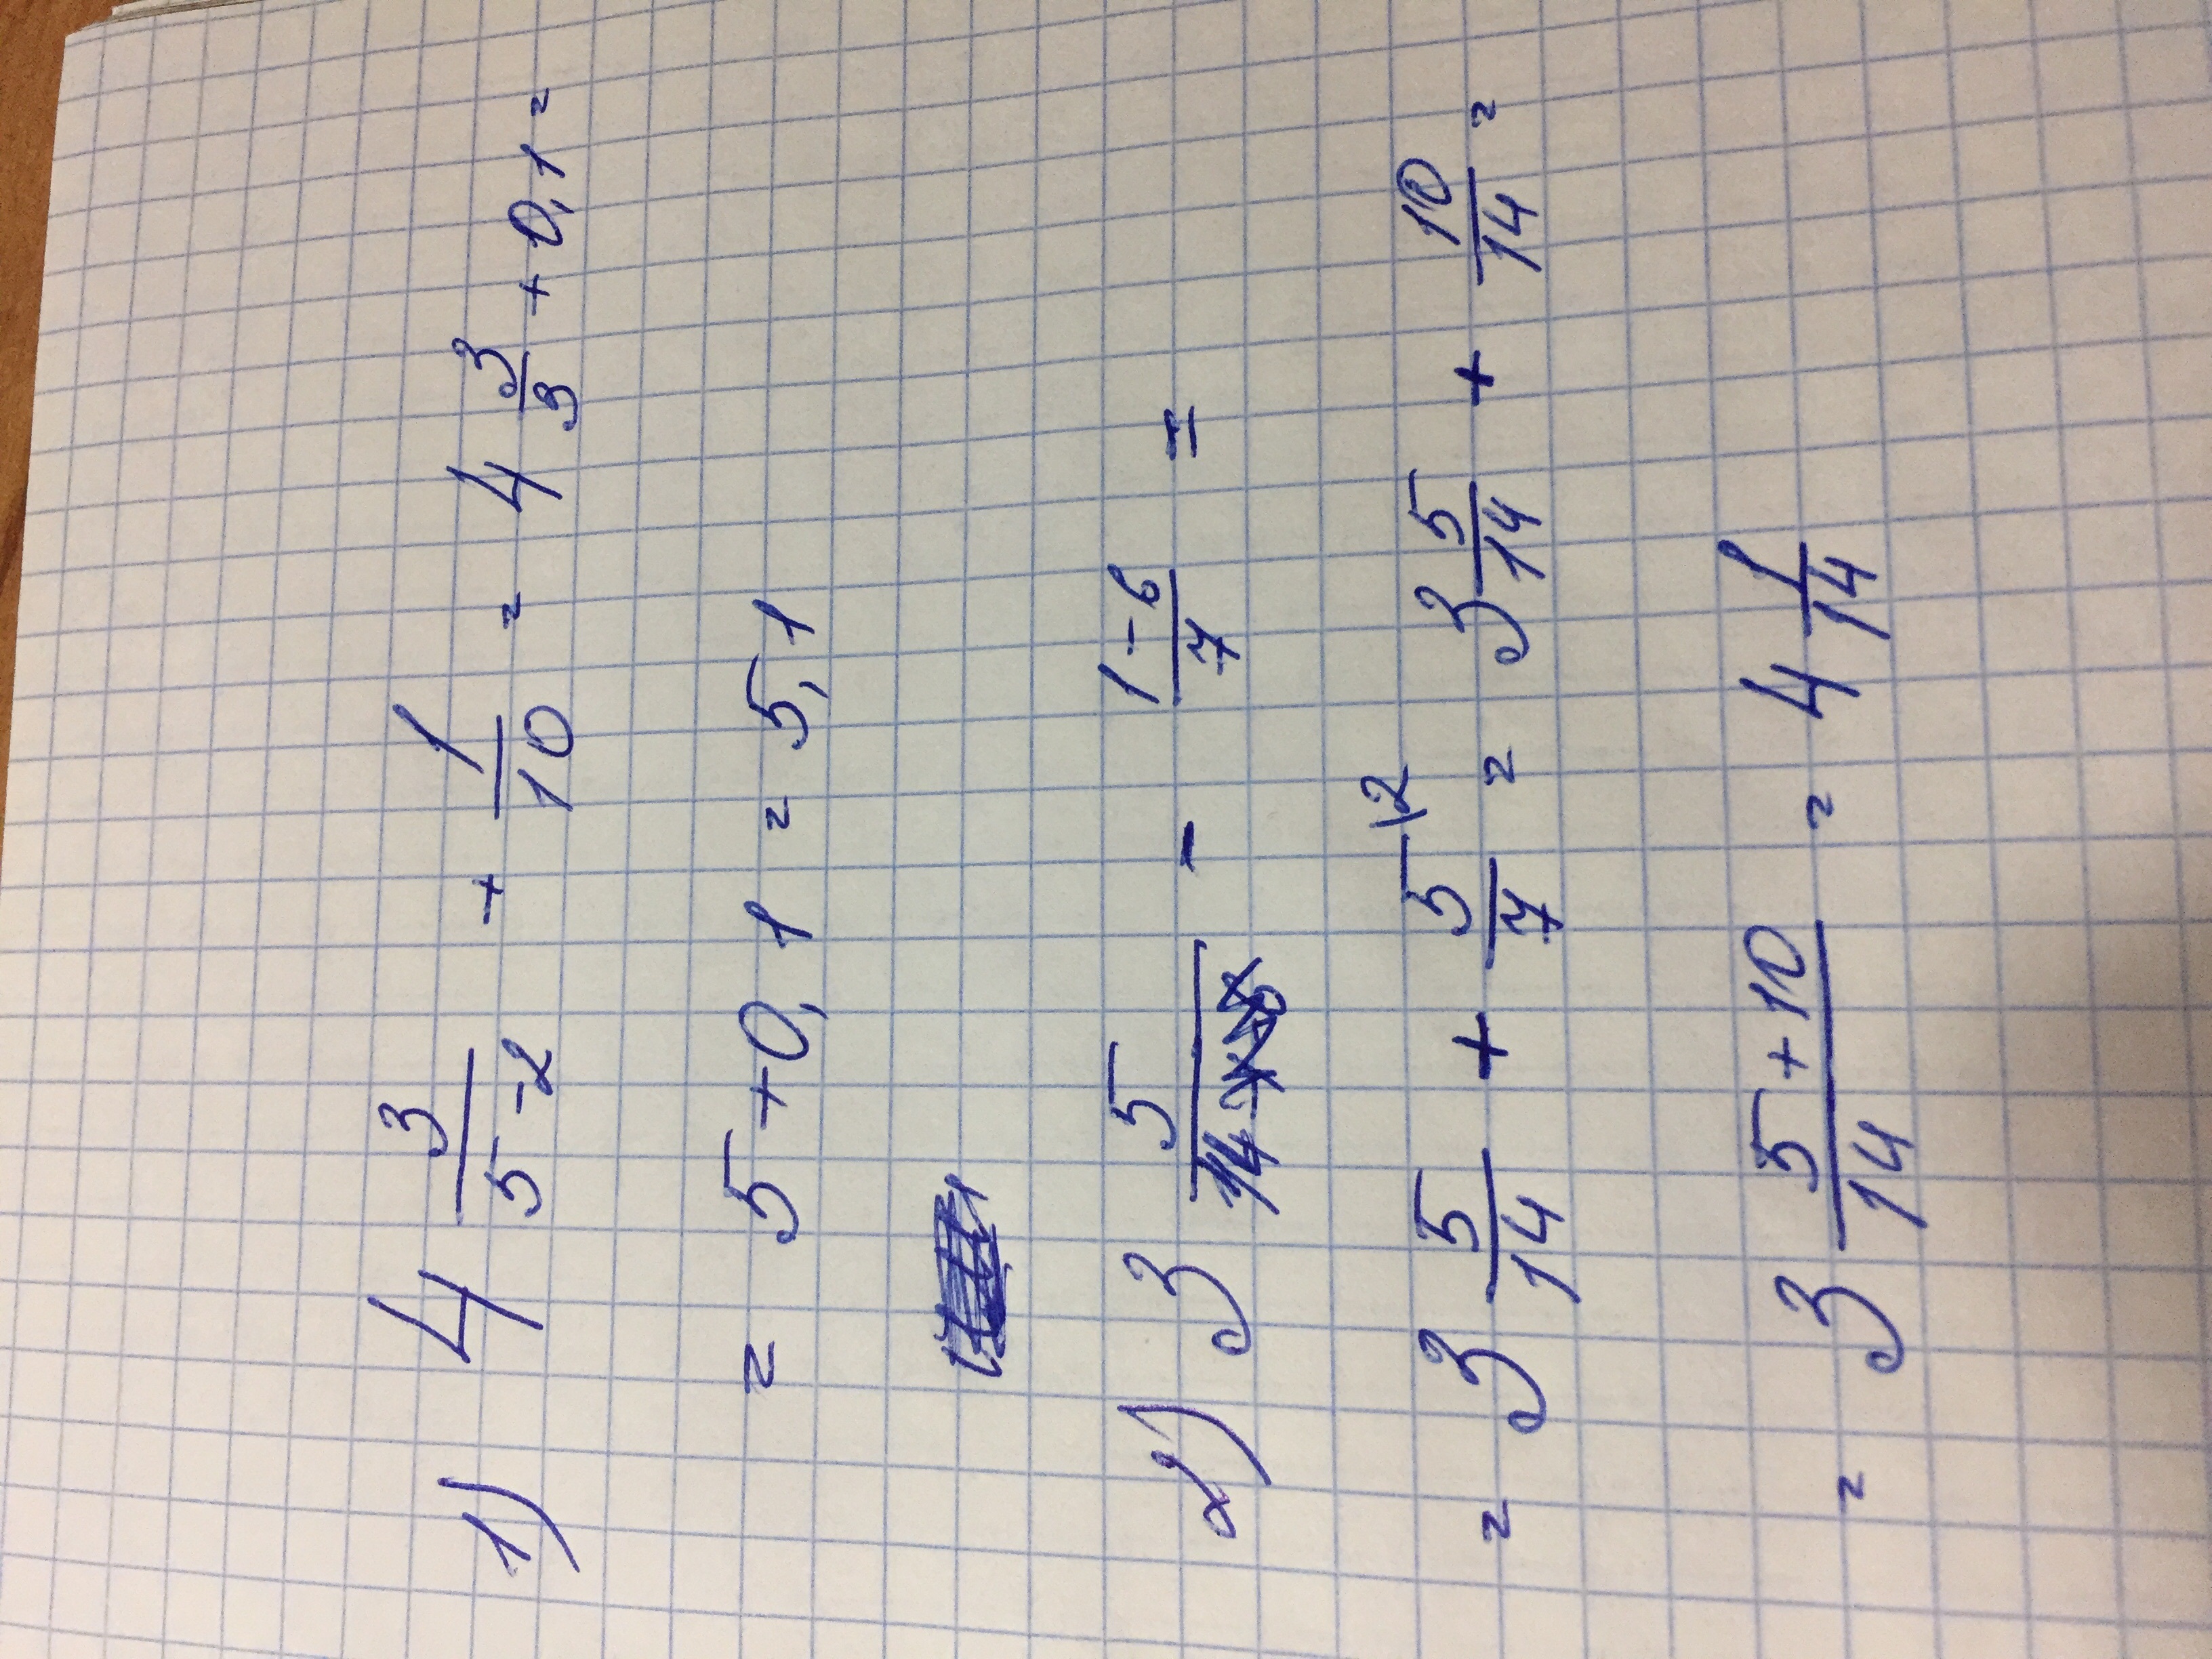 1) 4 3/(5-2) + 1/10 = 4 3/3 + 0,1 =
= 5+0,1 = 5,1
2) 3 5/14 - (1-6)/7 =
= 3 5/14 + 5\2/7 = 3 5/14 + 10/14 =
= 3 (5+10)/14 = 4 1/14